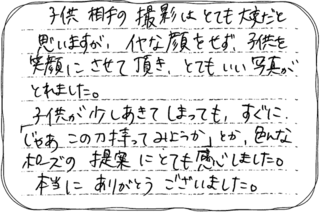 子供相手の撮影はとても大変だと
思いますが、イヤな顔をせず、子供を
笑顔にさせて頂き、とてもいい写真が
とれました。
子供が少しあきてしまっても、すぐに
「じゃあこの刀持ってみようか」とか、色んな
ポーズの提案にとても感心しました。
本当にありがとうございました。